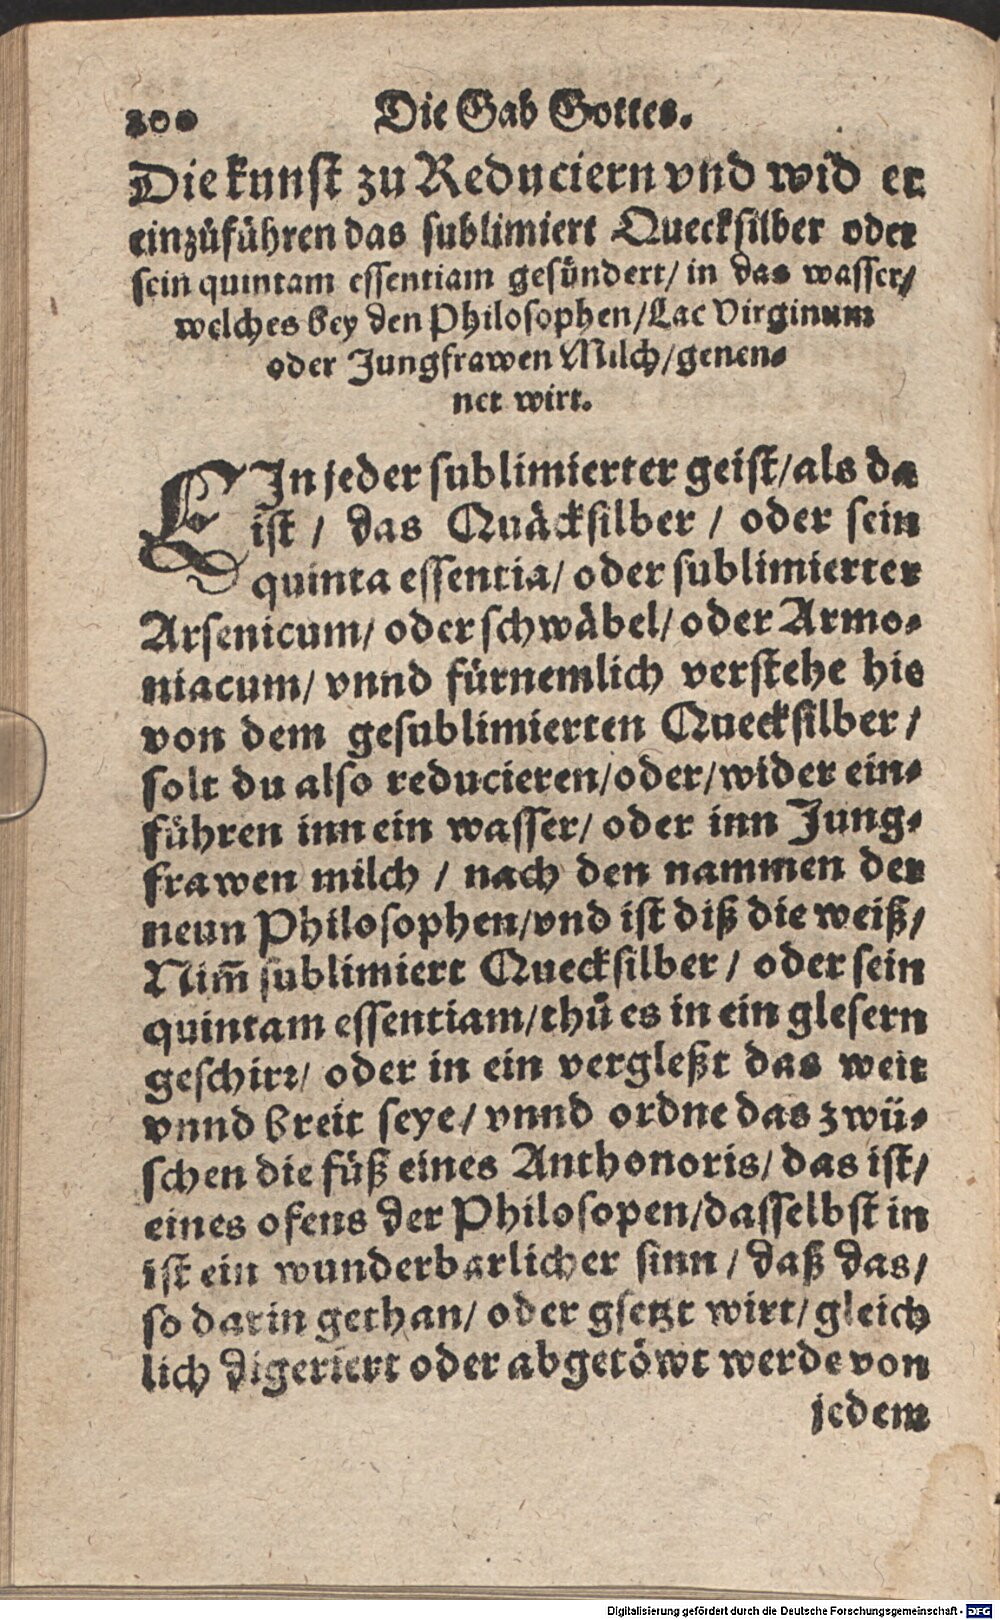 200 Die Gab Gottes.
Die kunst zu Reduciern vnd wid er
einzůführen das sublimiert Quecksilber oder
sein quintam essentiam gesündert/ in das wasser/
welches bey den Philosophen/Lac Virginum
oder Jungfrawen Milch/genen-
net wirt.
EIn jeder sublimierter geist/als da
ist / das Quäcksilber / oder sein
quinta essentia/ oder sublimierter
Arsenicum/ oder schwäbel/ oder Armo-
niacum/ vnnd fürnemlich verstehe hie
von dem gesublimierten Quecksilber/
solt du also reducieren/oder/wider ein-
führen inn ein wasser/ oder inn Jung-
frawen milch / nach den nammen der
neun Philosophen/vnd ist diß die weiß/
Nim̃ sublimiert Quecksilber / oder sein
quintam essentiam/thů es in ein glesern
geschirꝛ/ oder in ein vergleßt das weit
vnnd breit seye/ vnnd ordne das zwü-
schen die füß eines Anthonoris/ das ist/
eines ofens der Philosopen/dasselbst in
ist ein wunderbarlicher sinn / daß das/
so darin gethan/ oder gsetzt wirt/ gleich
lich digeriert oder abgetöwt werde von
jedem
Digitalisierung gefördert durch die Deutsche Forschungsgemeinschaft - DFG